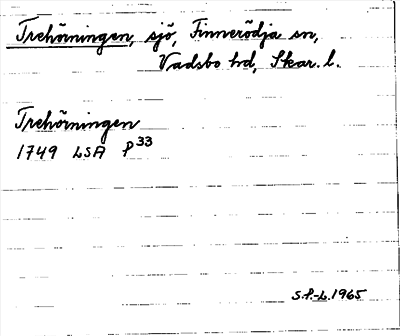 Trehörningen, sjö, Finnerödja sn,
Vadsbo hd, Skar. l.
Trehörningen
1749 LSA P33
S.P.-L. 1965